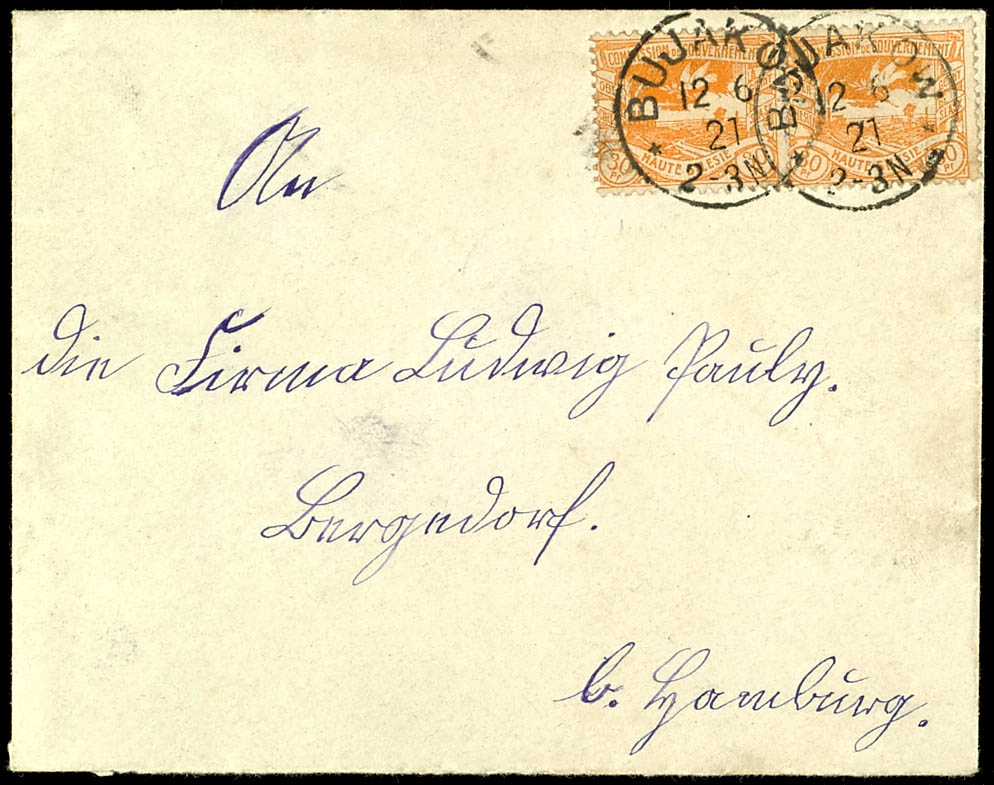 BUJAKOW
12 6
21
2-3N
BUJAKOW
12 6
21
2-3N
COMMISSION DE GOUVERNEMENT
HAUTE SILESIE
30
PF
COMMISSION DE GOUVERNEMENT
HAUTE SILESIE
30
PF
An
die Firma Ludwig Pauly.
Bergedorf.
b. Hamburg.